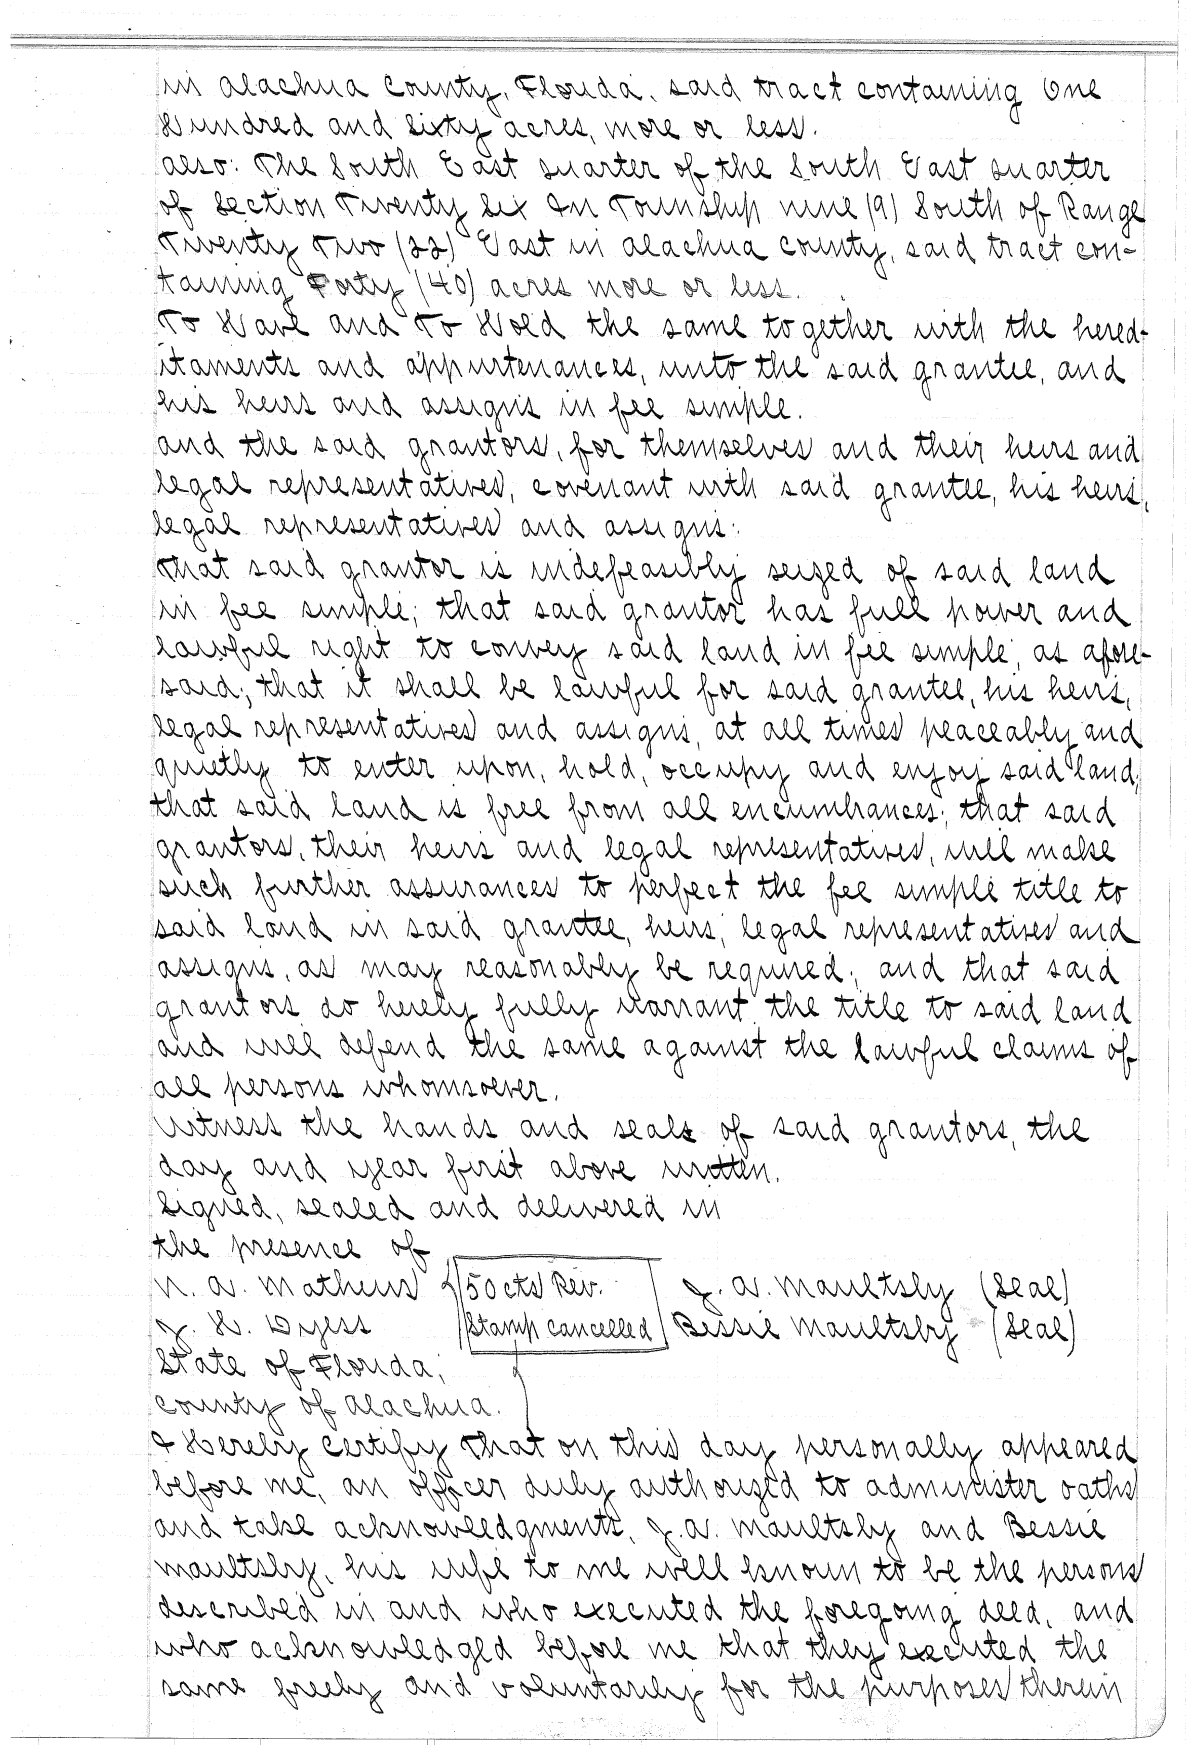 in Alachua County, Florida, said tract containing One
Hundred and Sixty acres, more or less.
Also: The South East quarter of the South East quarter
of Section Twenty Six In Township nine (9) South of Range
Twenty Two (22) East in Alachua County, said tract con-
taining Forty (40) acres more or less.
To Have and To Hold the same together with the hered-
itaments and appurtenances, unto the said grantee, and
his heirs and assigns in fee simple.
And the said grantors, for themselves and their heirs and
legal representatives, covenant with said grantee, his heirs,
legal representatives and assigns:
That said grantor is indefeasibly seized of said land
in fee simple; that said grantor has full power and
lawful right to convey said land in fee simple, as afore-
said; that it shall be lawful for said grantee, his heirs,
legal representatives and assigns, at all times peaceably and
quietly to enter upon, hold, occupy and enjoy said land;
that said land is free from all encumbrances; that said
grantors, their heirs and legal representatives, will make
such further assurances to perfect the fee simple title to
said land in said grantee, heirs, legal representatives and
assigns, as may reasonably be required; and that said
grantors do hereby fully warrant the title to said land
and will defend the same against the lawful claims of
all persons whomsoever.
Witness the hands and seals of said grantors, the
day and year first above written.
Signed, sealed and delivered in
the presence of
N. A. Matheus 50cts Rev. J. A. Maultsby (Seal)
J. H. Dyess Stamp cancelled Bessie Maultsby (Seal)
State of Florida,
County of Alachua.
I Hereby Certify That on this day personally appeared
before me, an officer duly authorized to administer oaths
and take acknowledgments, J. A. Maultsby and Bessie
Maultsby, his wife to me well known to be the persons
described in and who executed the foregoing deed, and
who acknowledged before me that they executed the
same freely and voluntarily for the purposes therein